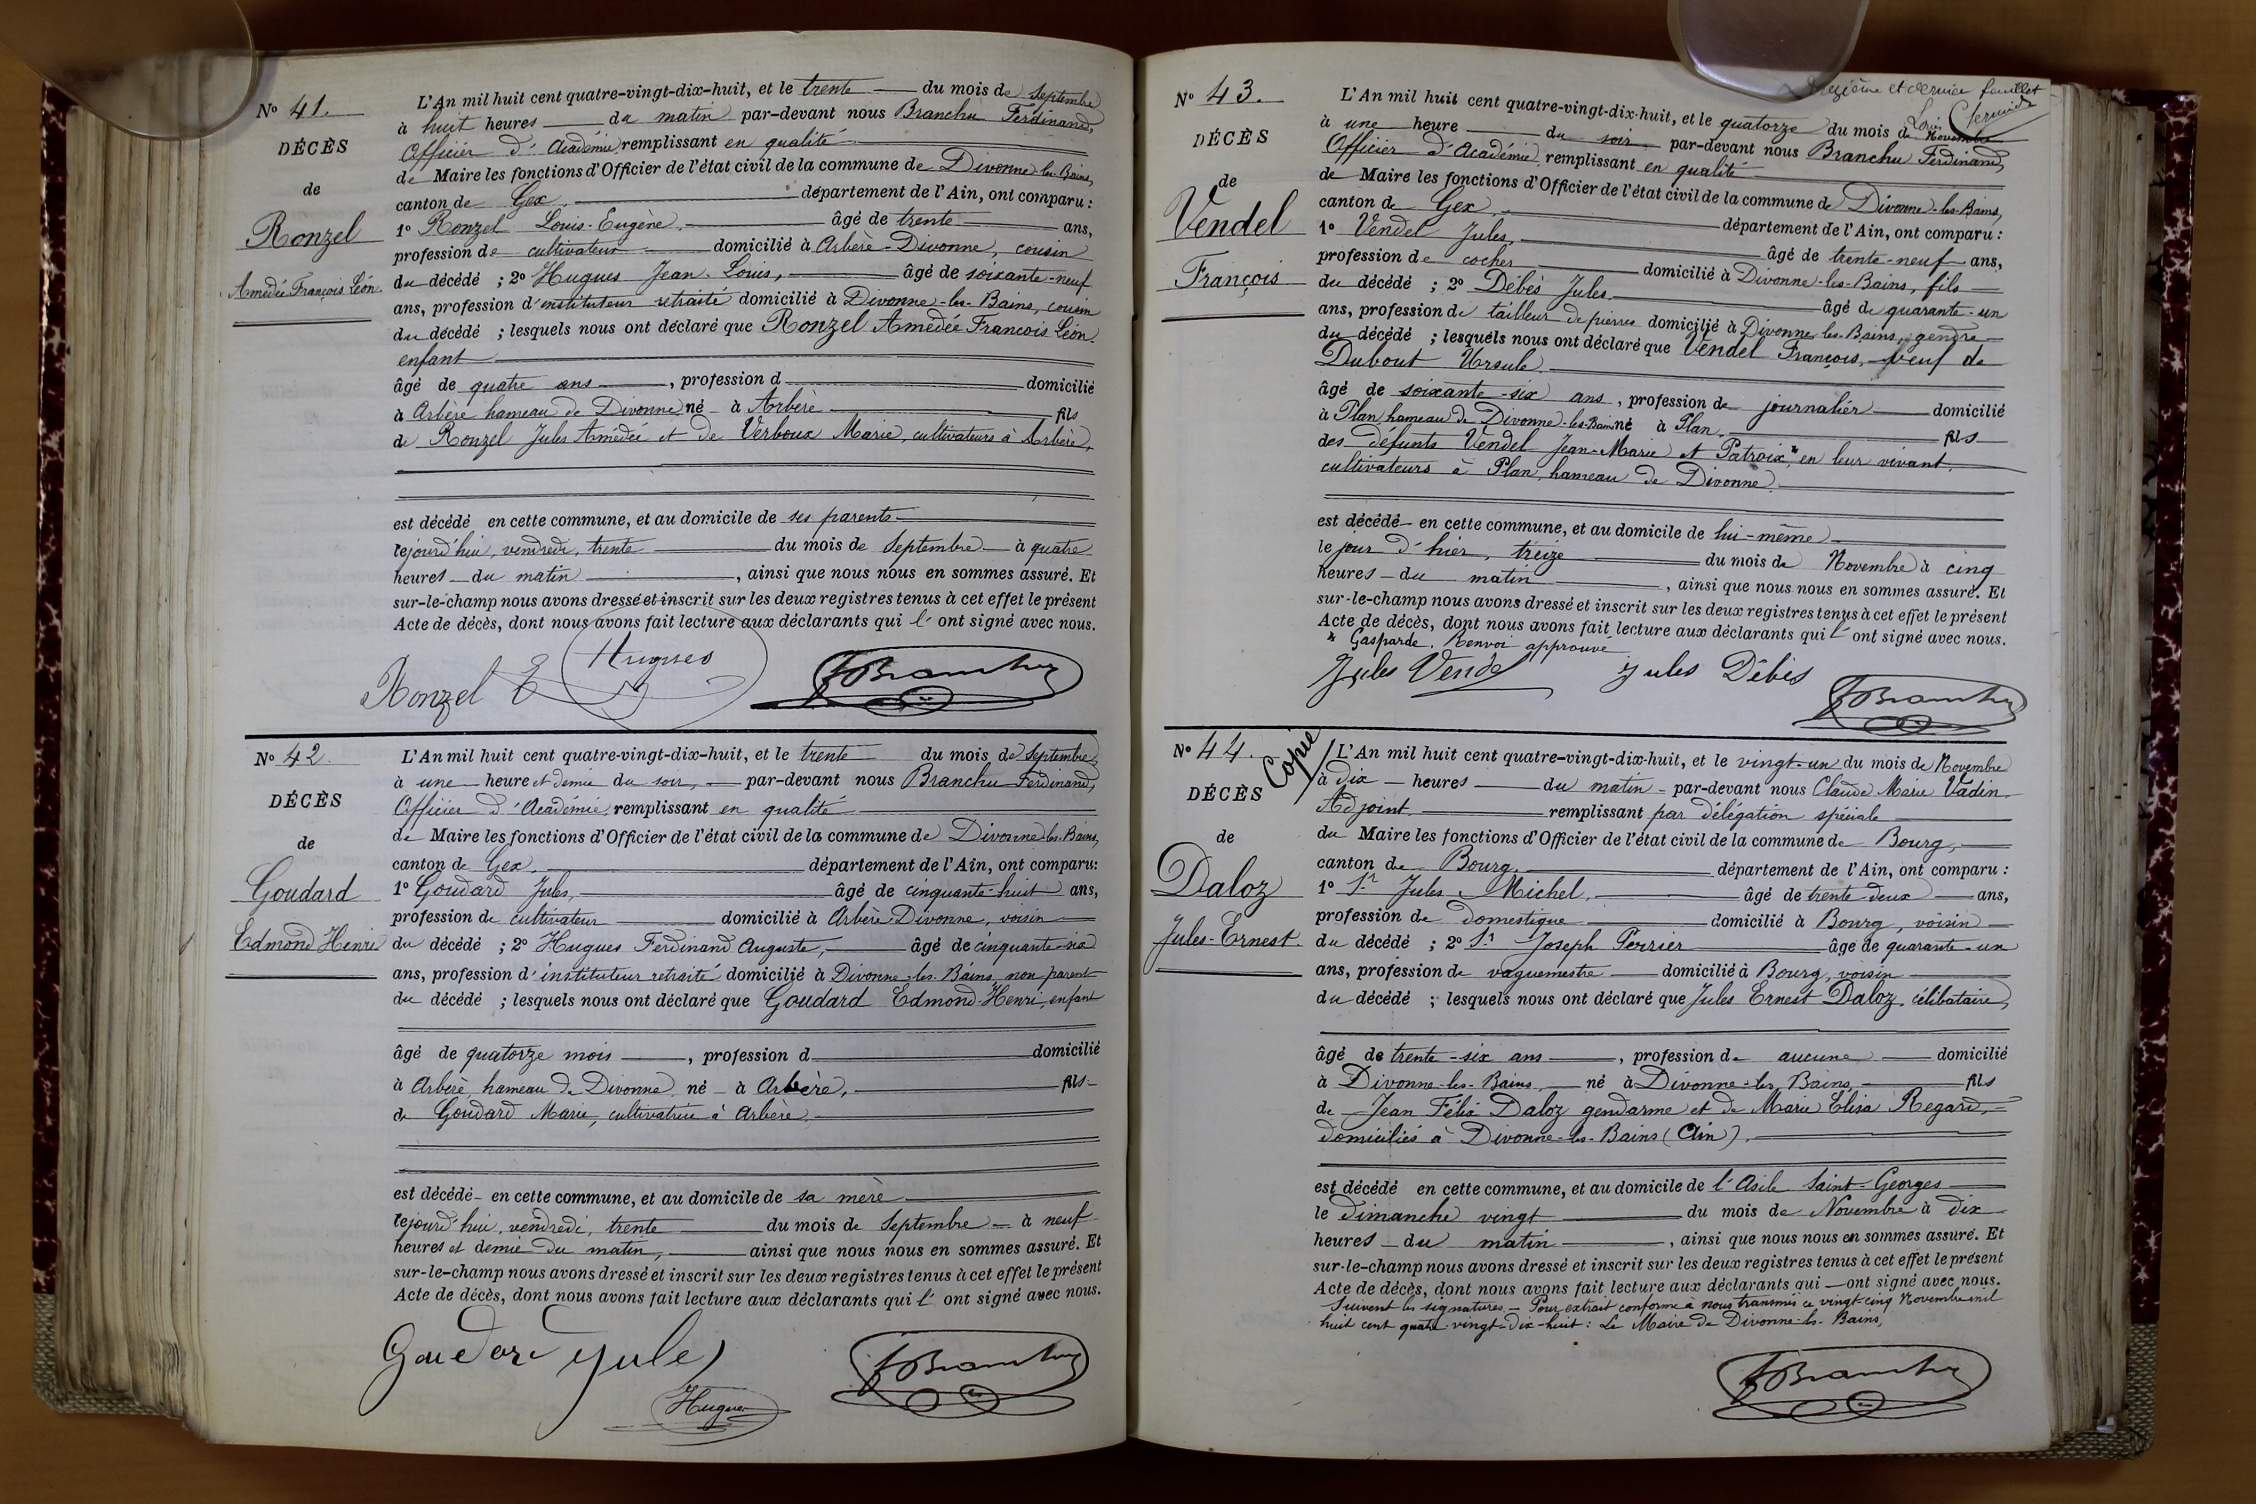 Nº 41.
DÉCÈS
de
Ronzel
Amédée François Léon.
L'An mil huit cent quatre-vingt-dix-huit, et le trente du mois de Septembre
à huit heures du matin par-devant nous Branchu Ferdinand,
Officier d'Académie remplissant en qualité
de Maire les fonctions d'Officier de l'état civil de la commune de Divonne-les-Bains,
canton de Gex, département de l'Ain, ont comparu :
1º Ronzel Louis-Eugène, âgé de trente ans,
profession de cultivateur domicilié à Arbère-Divonne, cousin
du décédé ; 2º Hugues Jean-Louis, âgé de soixante-neuf
ans, profession d'instituteur retraité domicilié à Divonne-les-Bains, cousin
du décédé ; lesquels nous ont déclaré que Ronzel Amédée François Léon,
enfant
âgé de quatre ans, profession d domicilié
à Arbère hameau de Divonne né à Arbère fils
de Ronzel Jules Amédée et de Verboux Marie, cultivateurs à Arbère,
est décédé en cette commune, et au domicile de ses parents
cejourd'hui, vendredi, trente du mois de Septembre à quatre
heures du matin, ainsi que nous nous en sommes assuré. Et
sur-le-champ nous avons dressé et inscrit sur les deux registres tenus à cet effet le présent
Acte de décès, dont nous avons fait lecture aux déclarants qui l'ont signé avec nous.
Ronzel E Hugues FBranchu
Nº 42.
DÉCÈS
de
Goudard
Edmond Henri
L'An mil huit cent quatre-vingt-dix-huit, et le trente du mois de Septembre,
à une heure et demie du soir, par-devant nous Branchu Ferdinand,
Officier d'Académie remplissant en qualité
de Maire les fonctions d'Officier de l'état civil de la commune de Divonne-les-Bains,
canton de Gex, département de l'Ain, ont comparu :
1º Goudard Jules, âgé de cinquante-huit ans,
profession de cultivateur domicilié à Arbère-Divonne, voisin
du décédé ; 2º Hugues Ferdinand Auguste, âgé de cinquante-six
ans, profession d'instituteur retraité domicilié à Divonne-les-Bains, non parent
du décédé ; lesquels nous ont déclaré que Goudard Edmond-Henri, enfant
âgé de quatorze mois, profession d domicilié
à Arbère, hameau de Divonne né à Arbère, fils
de Goudard Marie, cultivatrice à Arbère.
est décédé en cette commune, et au domicile de sa mère
cejourd'hui, vendredi, trente du mois de Septembre à neuf
heures et demie du matin, ainsi que nous nous en sommes assuré. Et
sur-le-champ nous avons dressé et inscrit sur les deux registres tenus à cet effet le présent
Acte de décès, dont nous avons fait lecture aux déclarants qui l'ont signé avec nous.
Goudard Jules FBranchu
Hugues
et dernier feuillet
Nº 43.
DÉCÈS
de
Vendel
François
L'An mil huit cent quatre-vingt-dix-huit, et le quatorze du mois de Novembre
à une heure du soir par-devant nous Branchu Ferdinand,
Officier d'Académie remplissant en qualité
de Maire les fonctions d'Officier de l'état civil de la commune de Divonne-les-Bains,
canton de Gex, département de l'Ain, ont comparu :
1º Vendel Jules, âgé de trente-neuf ans,
profession de cocher domicilié à Divonne-les-Bains, fils
du décédé ; 2º Débès Jules âgé de quarante-un
ans, profession de tailleur de pierres domicilié à Divonne-les-Bains, gendre
du décédé ; lesquels nous ont déclaré que Vendel François, veuf de
Dubout Ursule.
âgé de soixante-six ans, profession de journalier domicilié
à Plan, hameau de Divonne-les-Bains né à Plan, fils
des défunts Vendel Jean-Marie et Patroix * en leur vivant,
cultivateurs à Plan, hameau de Divonne.
est décédé en cette commune, et au domicile de lui-même
le jour d'hier, treize du mois de Novembre à cinq
heures du matin, ainsi que nous nous en sommes assuré. Et
sur-le-champ nous avons dressé et inscrit sur les deux registres tenus à cet effet le présent
Acte de décès, dont nous avons fait lecture aux déclarants qui l'ont signé avec nous.
* Gasparde. Renvoi approuvé
Jules Vendel Jules Débès
FBranchu
Nº 44.
Copié
DÉCÈS
de
Daloz
Jules-Ernest.
L'An mil huit cent quatre-vingt-dix-huit, et le vingt-un du mois de Novembre
à dix heures du matin par-devant nous Claude Marie Vadin
Adjoint remplissant par délégation spéciale
du Maire les fonctions d'Officier de l'état civil de la commune de Bourg,
canton de Bourg, département de l'Ain, ont comparu :
1º Sr Jules Michel, âgé de trente deux ans,
profession de domestique domicilié à Bourg, voisin
du décédé ; 2º Sr Joseph Perrier âgé de quarante-un
ans, profession de vaguemestre domicilié à Bourg, voisin
du décédé ; lesquels nous ont déclaré que Jules Ernest Daloz, célibataire,
âgé de trente-six ans, profession de aucune domicilié
à Divonne-les-Bains, né à Divonne-les-Bains, fils
de Jean Félix Daloz gendarme et de Marie Elisa Regard,
domiciliés à Divonne-les-Bains (Ain).
est décédé en cette commune, et au domicile de l'Asile Saint-Georges
le dimanche vingt du mois de Novembre à dix
heures du matin, ainsi que nous nous en sommes assuré. Et
sur-le-champ nous avons dressé et inscrit sur les deux registres tenus à cet effet le présent
Acte de décès, dont nous avons fait lecture aux déclarants qui ont signé avec nous.
Suivent les signatures. - Pour extrait conforme à nous transmis ce vingt-cinq Novembre mil
huit cent quatre-vingt-dix-huit : Le Maire de Divonne-les-Bains,
FBranchu